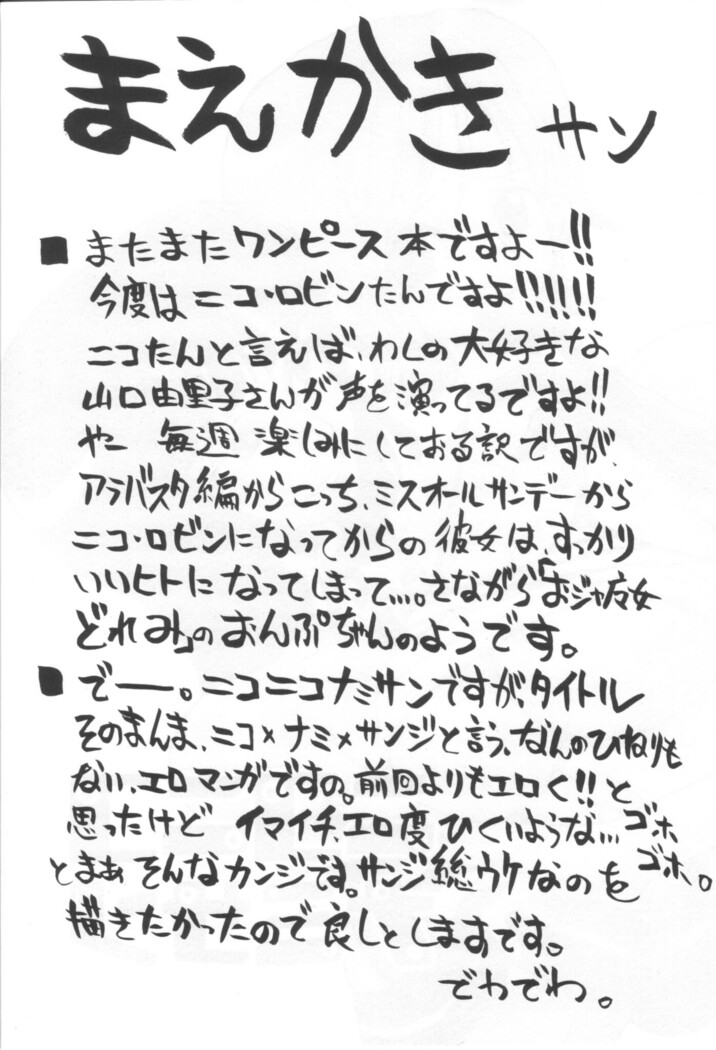 まえかきサン
■またまたワンピース本ですよー!!
今度はニコ・ロビンたんですよ!!!!!
ニコたんと言えば、わしの大好きな
山口由里子さんが声を演ってるですよ!!
やー 毎週楽しみにしておる訳ですが、
アラバスタ編からこっち、ミスオールサンデーから
ニコ・ロビンになってからの彼女は、すっかり
いいヒトになってしまって…。さながら「おジャ魔女
どれみ」のおんぷちゃんのようです。
■でー。ニコニコナミサンですが、タイトル
そのまんま、ニコ×ナミ×サンジと言う、なんのひねりも
ない、エロマンガですの。前回よりもエロく!!と
思ったけど イマイチ、エロ度ひくいような… ゴホ
ゴホ。
とまぁ そんなカンジです。サンジ総ウケなのを
描きたかったので良しとしますです。
でわでわ。